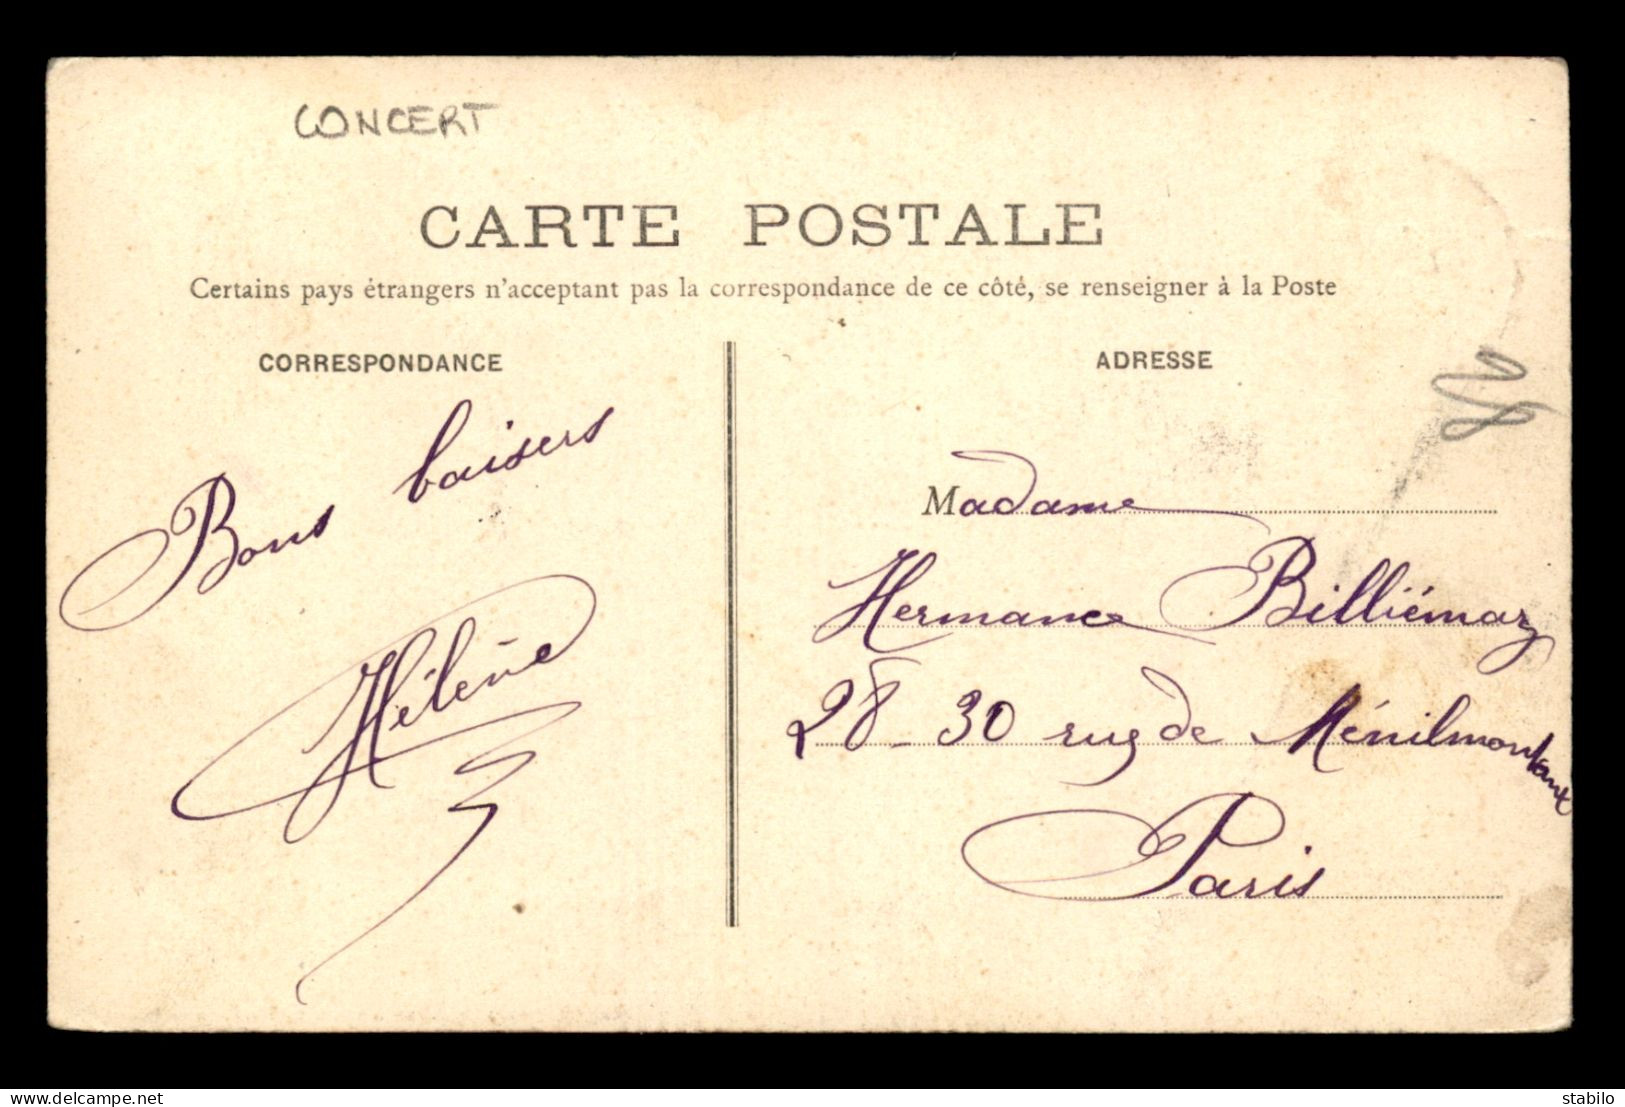 CONCERT
CARTE POSTALE
Certains pays étrangers n'acceptant pas la correspondance de ce côté, se renseigner à la Poste
CORRESPONDANCE
Bons baisers
Hélène
ADRESSE
Madame
Hermance Billiémaz
28-30 rue de Ménilmontant
Paris
delcampe.net
stabilo